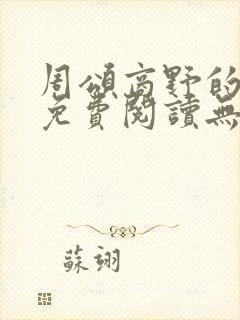 周頌高野的
免費閱讀無
蘇翊